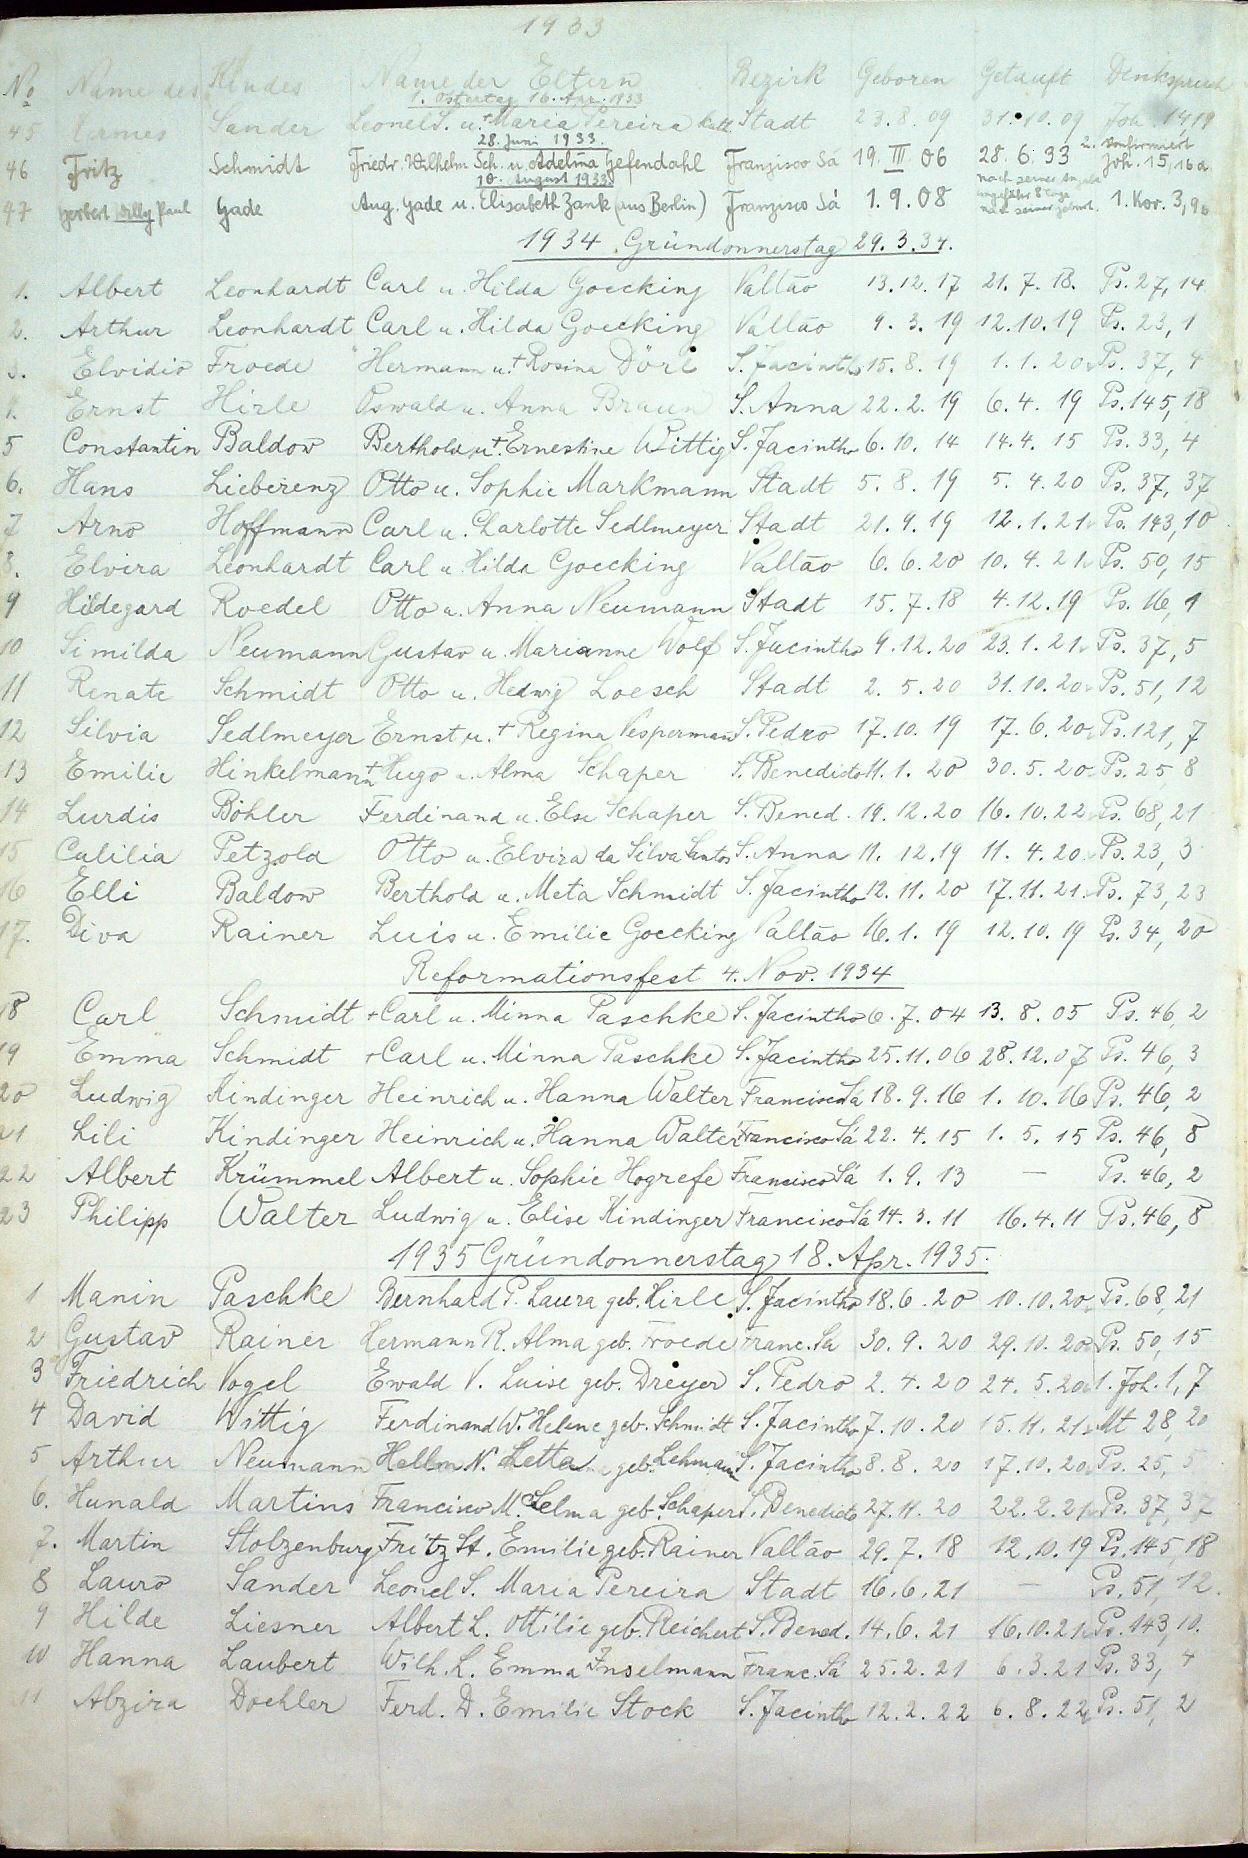 1933
No Name des Kindes Name der Eltern Bezirk Geboren Getauft Denkspruch
1. Ostertag 16. Apr. 1933
45 Hermes Sander Leonel S. u. + Maria Pereira kath Stadt 23.8.09 31.10.09 Joh. 14,19
28. Juni 1933.
46 Fritz Schmidt Friedr. Wilhelm Sch. u. Adelma Hefendahl Franzisco Sá 19. III. 06 28.6.33 u. konfirmiert Joh. 15,16a
10. August 1933.
47 Herbert Willy Paul Gade Aug. Gade u. Elisabeth Zank (aus Berlin) Franzisco Sá 1.9.08 nach seiner Angabe ungefähr 8 Tage nach seiner Geburt. 1. Kor. 3,9b
1934. Gründonnerstag 29.3.34.
1. Albert Leonhardt Carl u. Hilda Goecking Vallão 13.12.17 21.7.18. Ps. 27,14
2. Arthur Leonhardt Carl u. Hilda Goecking Vallão 9.3.19 12.10.19 Ps. 23,1
3. Elvidio Froede Hermann u. + Rosina Dörl S. Jacintho 15.8.19 1.1.20 Ps. 37,4
4. Ernst Hirle Oswald u. Anna Braun S. Anna 22.2.19 6.4.19 Ps. 145,18
5 Constantin Baldow Berthold u. + Ernestine Wittig S. Jacintho 6.10.14 14.4.15 Ps. 33,4
6. Hans Lieberenz Otto u. Sophie Markmann Stadt 5.8.19 5.4.20 Ps. 37,37
7 Arno Hoffmann Carl u. Charlotte Sedlmeyer Stadt 21.9.19 12.1.21 Ps. 143,10
8. Elvira Leonhardt Carl u. Hilda Goecking Vallão 6.6.20 10.4.21 Ps. 50,15
9 Hildegard Roedel Otto u. Anna Neumann Stadt 15.7.18 4.12.19 Ps. 16,1
10 Similda Neumann Gustav u. Marianne Wolf S. Jacintho 9.12.20 23.1.21 Ps. 37,5
11 Renate Schmidt Otto u. Hedwig Loesch Stadt 2.5.20 31.10.20 Ps. 51,12
12 Silvia Sedlmeyer Ernst u. + Regina Vespermann S. Pedro 17.10.19 17.6.20 Ps. 121,7
13 Emilie Hinkelmann + Hugo u. Alma Schaper S. Benedicto 11.1.20 30.5.20 Ps. 25,8
14 Lurdis Böhler Ferdinand u. Else Schaper S. Bened. 19.12.20 16.10.22 Ps. 68,21
15 Calilia Petzold Otto u. Elvira da Silva Santos S. Anna 11.12.19 11.4.20 Ps. 23,3
16 Elli Baldow Berthold u. Meta Schmidt S. Jacintho 12.11.20 17.11.21 Ps. 73,23
17. Diva Rainer Luis u. Emilie Goecking Vallão 16.1.19 12.10.19 Ps. 34,20
Reformationsfest 4. Nov. 1934
18 Carl Schmidt + Carl u. Minna Paschke S. Jacintho 6.7.04 13.8.05 Ps. 46,2
19 Emma Schmidt + Carl u. Minna Paschke S. Jacintho 25.11.06 28.12.07 Ps. 46,3
20 Ludwig Kindinger Heinrich u. Hanna Walter Francisco Sá 18.9.16 1.10.16 Ps. 46,2
21 Lili Kindinger Heinrich u. Hanna Walter Francisco Sá 22.4.15 1.5.15 Ps. 46,8
22 Albert Krümmel Albert u. Sophie Hogrefe Francisco Sá 1.9.13 — Ps. 46,2
23 Philipp Walter Ludwig u. Elise Kindinger Francisco Sá 14.3.11 16.4.11 Ps. 46,8
1935 Gründonnerstag 18. Apr. 1935.
1 Manin Paschke Bernhard P. Laura geb. Hirle S. Jacintho 18.6.20 10.10.20 Ps. 68,21
2 Gustav Rainer Hermann R. Alma geb. Froede Franc. Sá 30.9.20 29.10.20 Ps. 50,15
3 Friedrich Vogel Ewald V. Luise geb. Dreyer S. Pedro 2.4.20 24.5.20 1. Joh. 1,7
4 David Wittig Ferdinand W. Helene geb. Schmidt S. Jacintho 7.10.20 15.11.21 Mt 28,20
5 Arthur Neumann Hellm. N. Letta geb. Lehmann S. Jacintho 8.8.20 17.10.20 Ps. 25,5
6. Hunald Martins Francisco M. Selma geb. Schaper S. Benedicto 27.11.20 22.2.21 Ps. 37,37
7. Martin Stolzenburg Fritz St. Emilie geb. Rainer Vallão 29.7.18 12.10.19 Ps. 145,18
8 Lauro Sander Leonel S. Maria Pereira Stadt 16.6.21 — Ps. 51,12.
9 Hilde Liesner Albert L. Ottilie geb. Reichert S. Bened. 14.6.21 16.10.21 Ps. 143,10.
10 Hanna Laubert Wilh. L. Emma Inselmann Franc. Sá 25.2.21 6.3.21 Ps. 33,4
11 Abzira Doehler Ferd. D. Emilie Stock S. Jacintho 12.2.22 6.8.22 Ps. 51,2